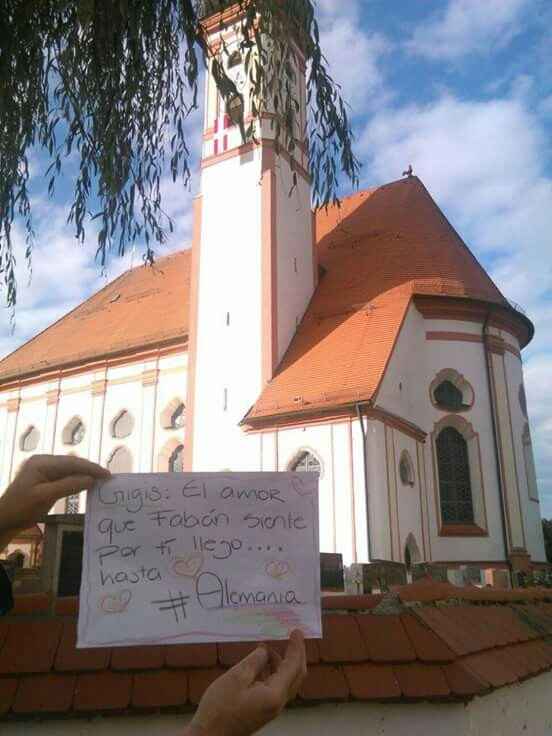 Gigis: El amor
que Fabán siente
por tí llego....
hasta
#Alemania